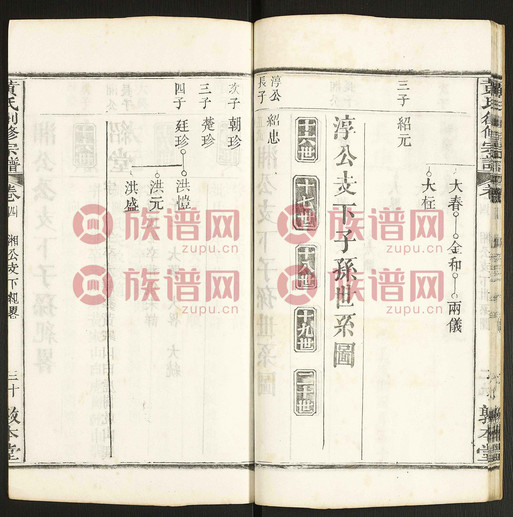 黃氏創修宗譜
三子 紹元
大春 金和 兩儀
大枉
淳公支下子孫世系圖
十六世 十七世 十八世 十九世 二十世
淳公長子 紹忠
次子 朝珍
三子 楚珍
四子 廷珍 洪愷
洪元
洪盛
黃氏創修宗譜 卷四 湘公支下紀畧 三十 敦本堂
敦本堂
族谱网
zupu.cn
族谱网
zupu.cn
族谱网
zupu.cn
族谱网
zupu.cn
族谱网
zupu.cn
族谱网
zupu.cn